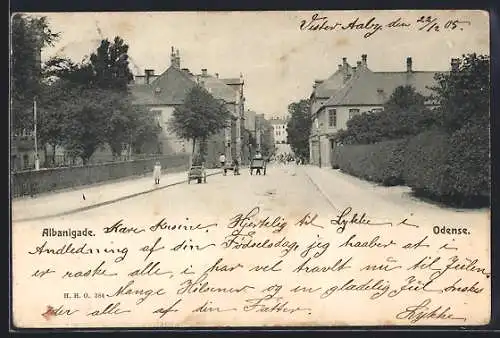 Vester Aaby den 22/12 05.
Albanigade.
Odense.
Kære Kusine! Hjertelig Lykke i
Andledning af din Födselsdag, jeg haaber at i
er raske alle, i har vel travlt nu til Julen,
H. H. O. 384
Mange Hilsener og en glædelig Jul önskes
eder alle af din Fætter
Lykke